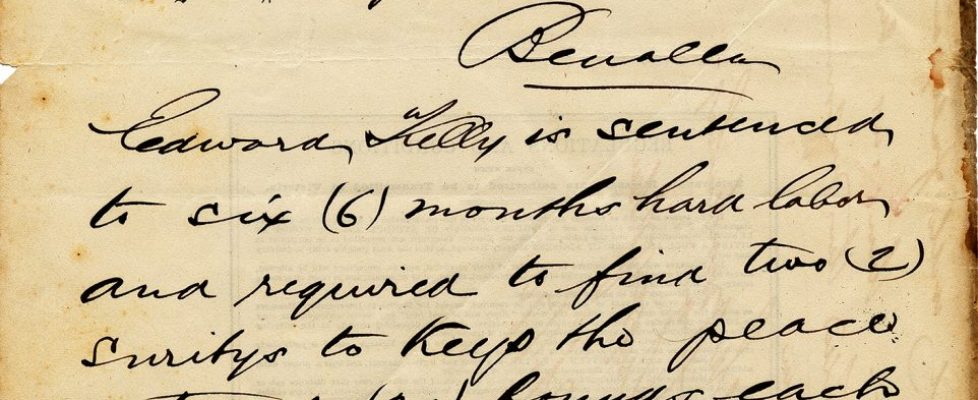 Benalla
Edward Kelly is sentenced
to six (6) months hard labor
and required to find two (2)
suritys to Keep the peace
pounds each